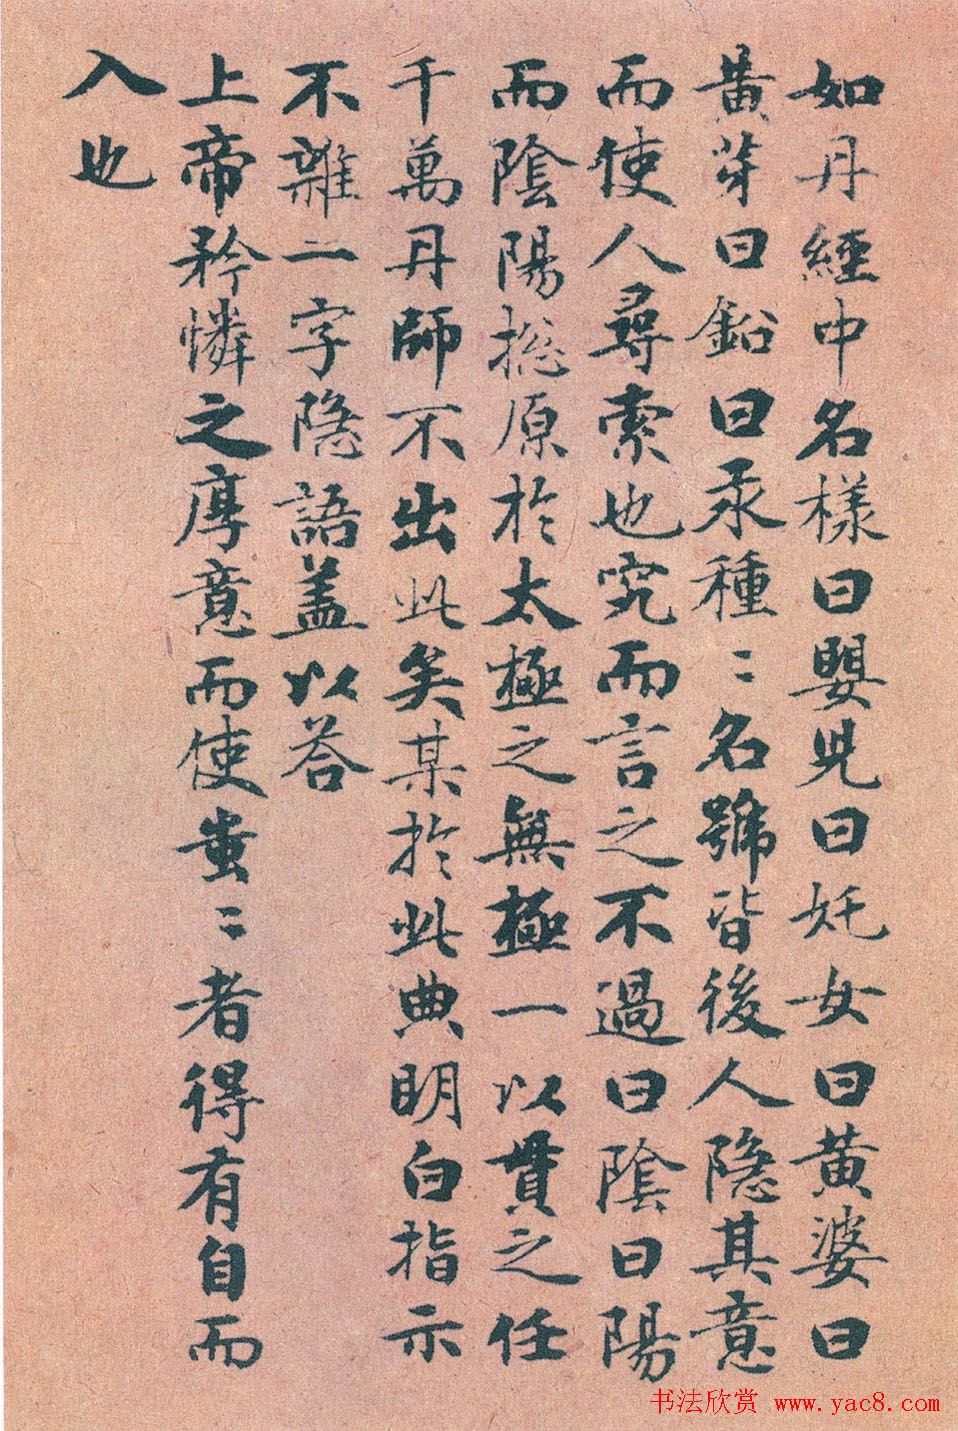 如丹經中名樣曰嬰児曰奼女曰黃婆曰
黃芽曰鉛曰汞種〻名號皆後人隱其意
而使人尋索也究而言之不過曰陰曰陽
而陰陽捴原於太極之無極一以貫之任
千萬丹師不出此矣某於此典明白指示
不離一字隱語盖以荅
上帝矜憐之厚意而使蚩〻者得有自而
入也
书法欣赏 www.yac8.com